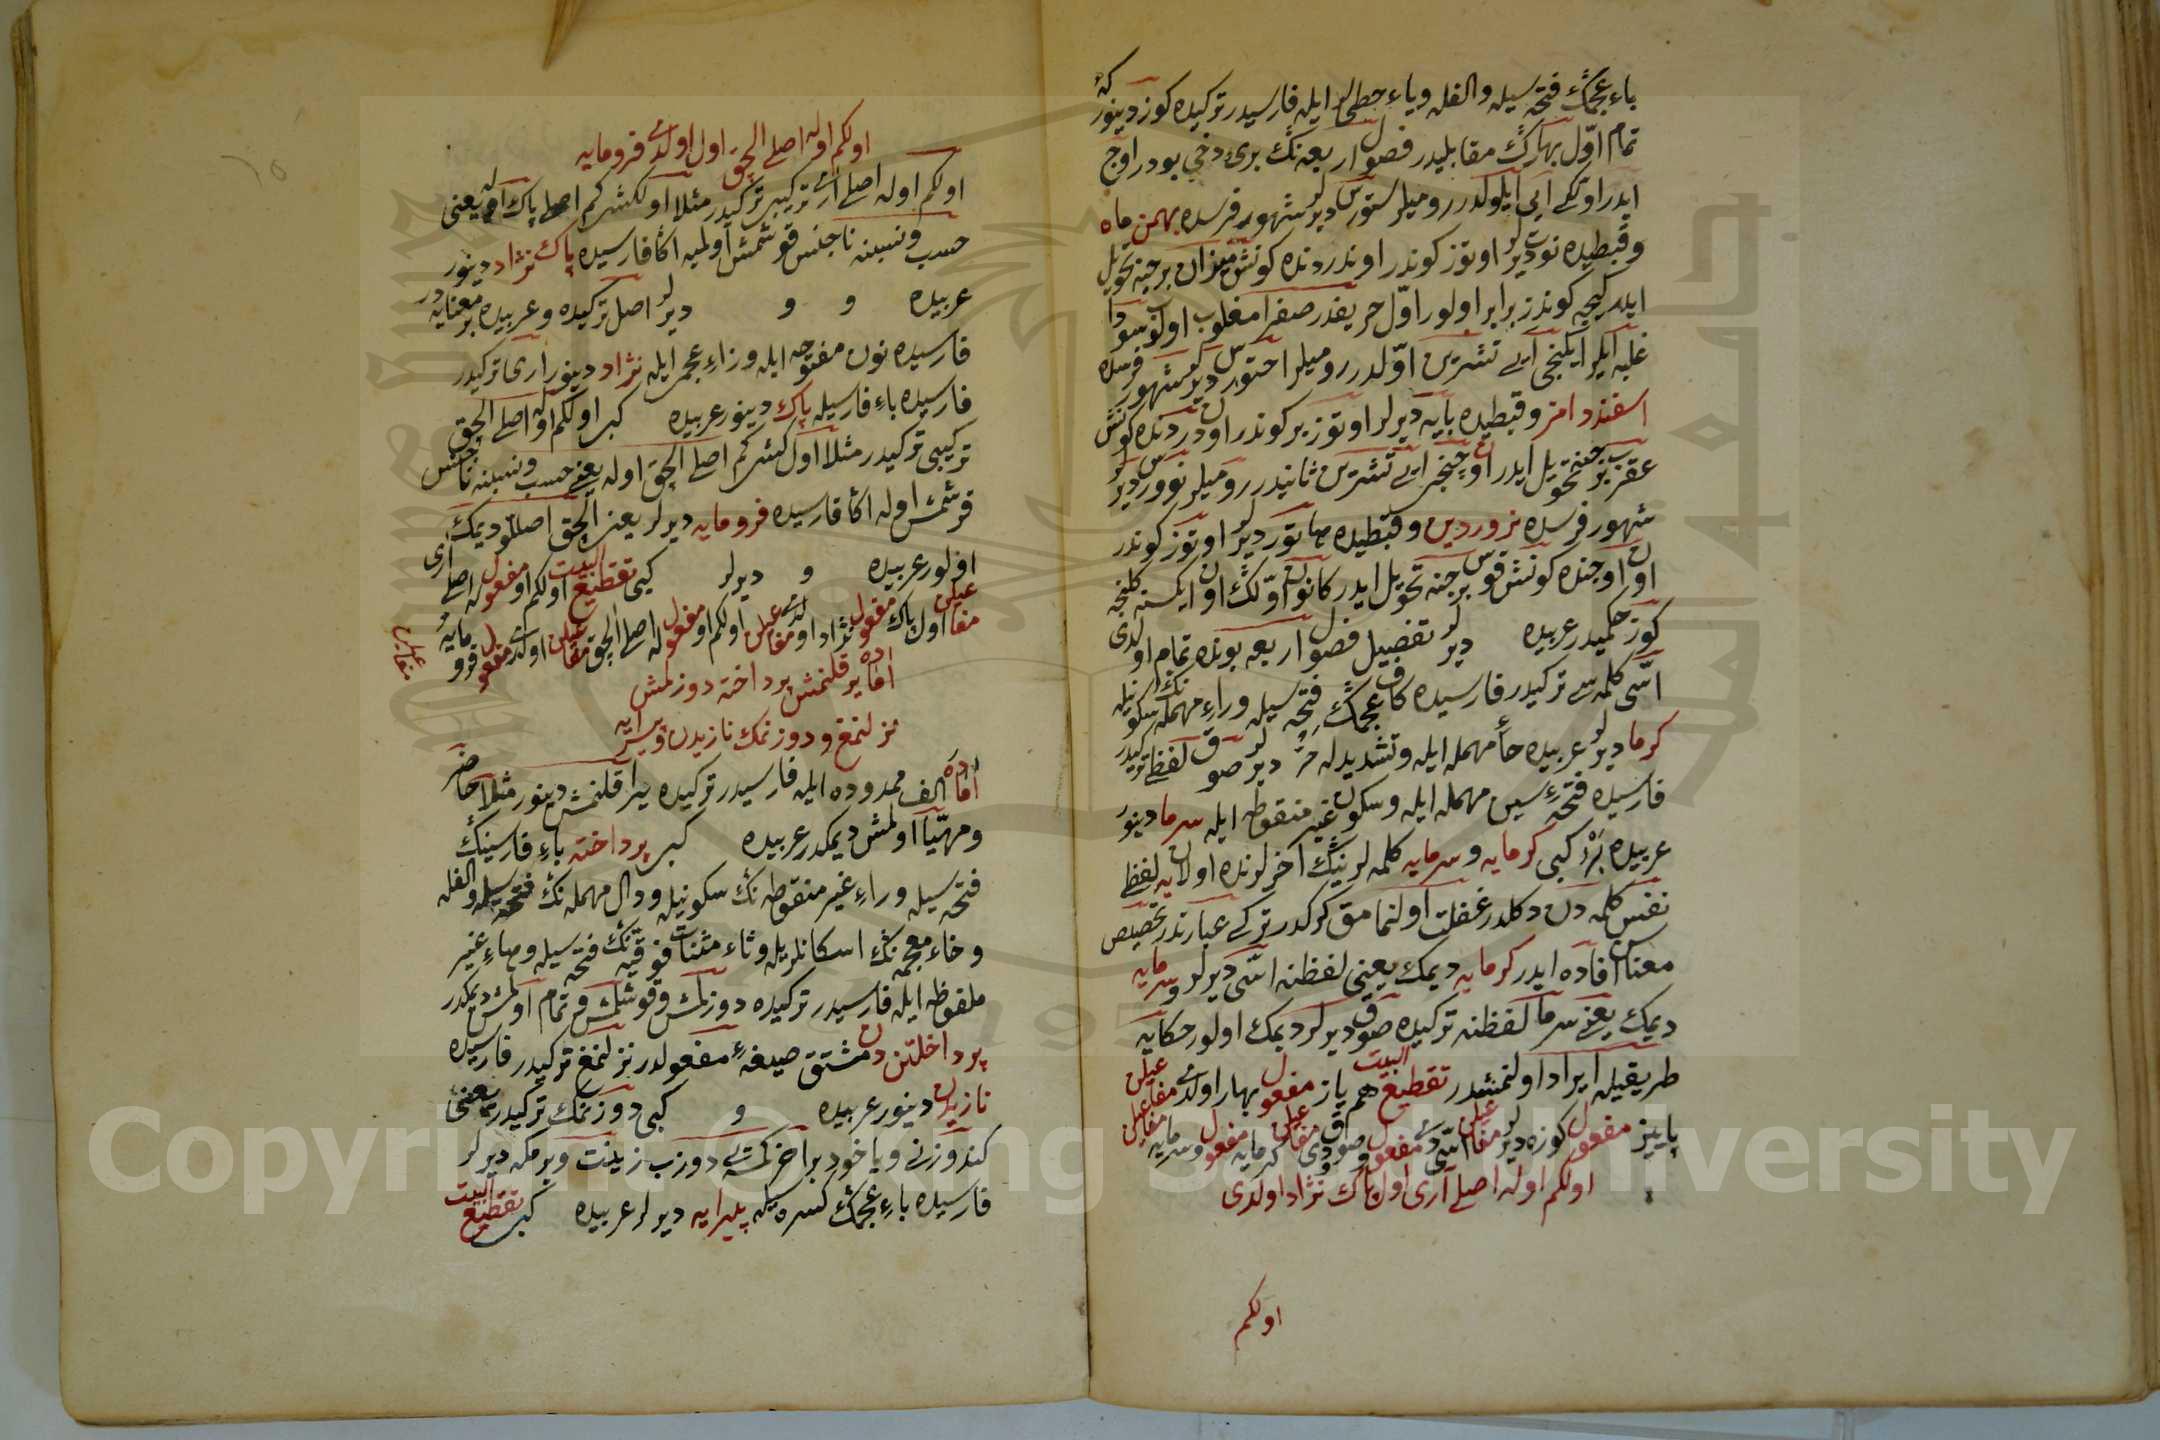 باء عجمڭ فتحه سيله والفله وياء حطى ايله فارسيدر تركيده كوز دينور كه
تمام اوّل بهارڭ مقابليدر فصول اربعه نڭ برى دخي بودر اوچ
ايدر اولكى ايى ايلولدر روميلر ستورس ديرلر شهور فرسده بهمن ماه
وقبطيده توت ديرلر اوتوز كوندر اوندردنده كونش ميزان برجنه تحويل
ايدر كيجه كوندز برابر اولور اوّل حريفدر صفرا مغلوب اولوب سودا
غلبه ايلر ايكنجى آيى تشرين اوّلدر روميلر احتورس ديرلر شهور فرسده
اسفندد امز وقبطيده بابه ديرلر اوتوز بر كوندر اون دردنده كونش
عقرب برجنه تحويل ايدر اوچنجى ايى تشرين ثانيدر روميلر نوورس ديرلر
شهور فرسده نروردين وقبطيده هاتور ديرلر اوتوز كوندر
اون اوچنده كونش قوس برجنه تحويل ايدر كانون اوّلڭ اون ايكسنه كلنجه
كوز حكميدر عربيده ديرلر تفصيل فصول اربعه بونده تمام اولدى
اسّى كلمه سى تركيدر فارسيده كاف عجمڭ فتحه سيله وراء مهمله نڭ سكونيله
كرما ديرلر عربيده حاء مهمله ايله وتشديدله حرّ ديرلر صوق لفظى تركيدر
فارسيده فتحهء سين مهمله ايله وسكون غير منقوطه ايله سرما دينور
عربيده برد كبى كرمايه وسرمايه كلمه لرينڭ اخرلرنده اولان يه لفظى
نفس كلمه دن دكلدر غفلت اولنمامق كركدر تركى عبارتدر تخصيص
معناسن افاده ايدر كرمايه ديمك يعنى لفظنه اسّى ديرلر وسرمايه
ديمك يعنى سرما لفظنه تركيده صوق ديرلر ديمك اولور حكايه
طريقيله ايراد اولنمشدر تقطيع البيت هم ياز مفعول بهار اولدى مفاعيلن
پاييز مفعول كوزه دير مفاعيلن اسّى دى مفعول وصوودى مفاعيلن كرمايه مفعول وسرمايه مفاعيلن
اولكم اوله اصلى آرى اول پاك نژاد اولدى
اولكم
اولكم اوله اصلى الچق اول اولدى فرومايه
اولكم اوله اصلى ارى تركيبى تركيدر مثلا اولكشى كم اصلى پاك اوله يعنى
حسب ونسبنه ناجنس قوشمش اولميه اكا فارسيده پاك نژاد دينور
عربيده و و ديرلر اصل تركيده وعربيده بر معنايه در
فارسيده نون مفتوحه ايله وزاء عجمى ايله نژاد دينور ارى تركيدر
فارسيده باء فارسيله پاك دينور عربيده كبى اولكم اوله اصلى الچق
تركيبى تركيدر مثلا اول كشى كم اصلى الچق اوله يعنى حسب ونسبنه ناجنس
قرشمش اوله اكا فارسيده فرومايه ديرلر يعنى الچق اصللو ديمك
اولور عربيده و ديرلر كبى تقطيع البيت اولكم او مفعول له اصلى ارى
مفاعيلن اول پاك مفعول نژاد اولدى مفاعيلن اولكم او مفعول له اصلى الچق مفاعيلن اول اولدى مفعول فرومايه
مفاعيلن
اماده ير قلنمش پرداخته دوزلمش
نزلنمغ ودوزنمك نازيدن وپيرايه
آماده الف ممدوده ايله فارسيدر تركيده يراقلنمش دينور مثلا حاضر
ومهيّا اولمش ديمكدر عربيده كبى پرداخته باء فارسينڭ
فتحه سيله وراء غير منقوطه نڭ سكونيله ودال مهمله نڭ فتحه سيله والفله
وخاء معجمه نڭ اسكانلريله وتاء مثنات فوقيه نڭ فتحه سيله وهاء غير
ملفوظه ايله فارسيدر تركيده دوزلمش وقوشلمش وتمام اولمش ديمكدر
پرداختن دن مشتق صيغهء مفعولدر نزلنمغ تركيدر فارسيده
نازيدن دينور عربيده و كبى دوزنمك تركيدر يعنى
كندوزنى وياخود بر اخر كمسنه يى دوزب زينت ويرمكه ديرلر
فارسيده باء عجمڭ كسره سيله پيرايه ديرلر عربيده كبى تقطيع البيت